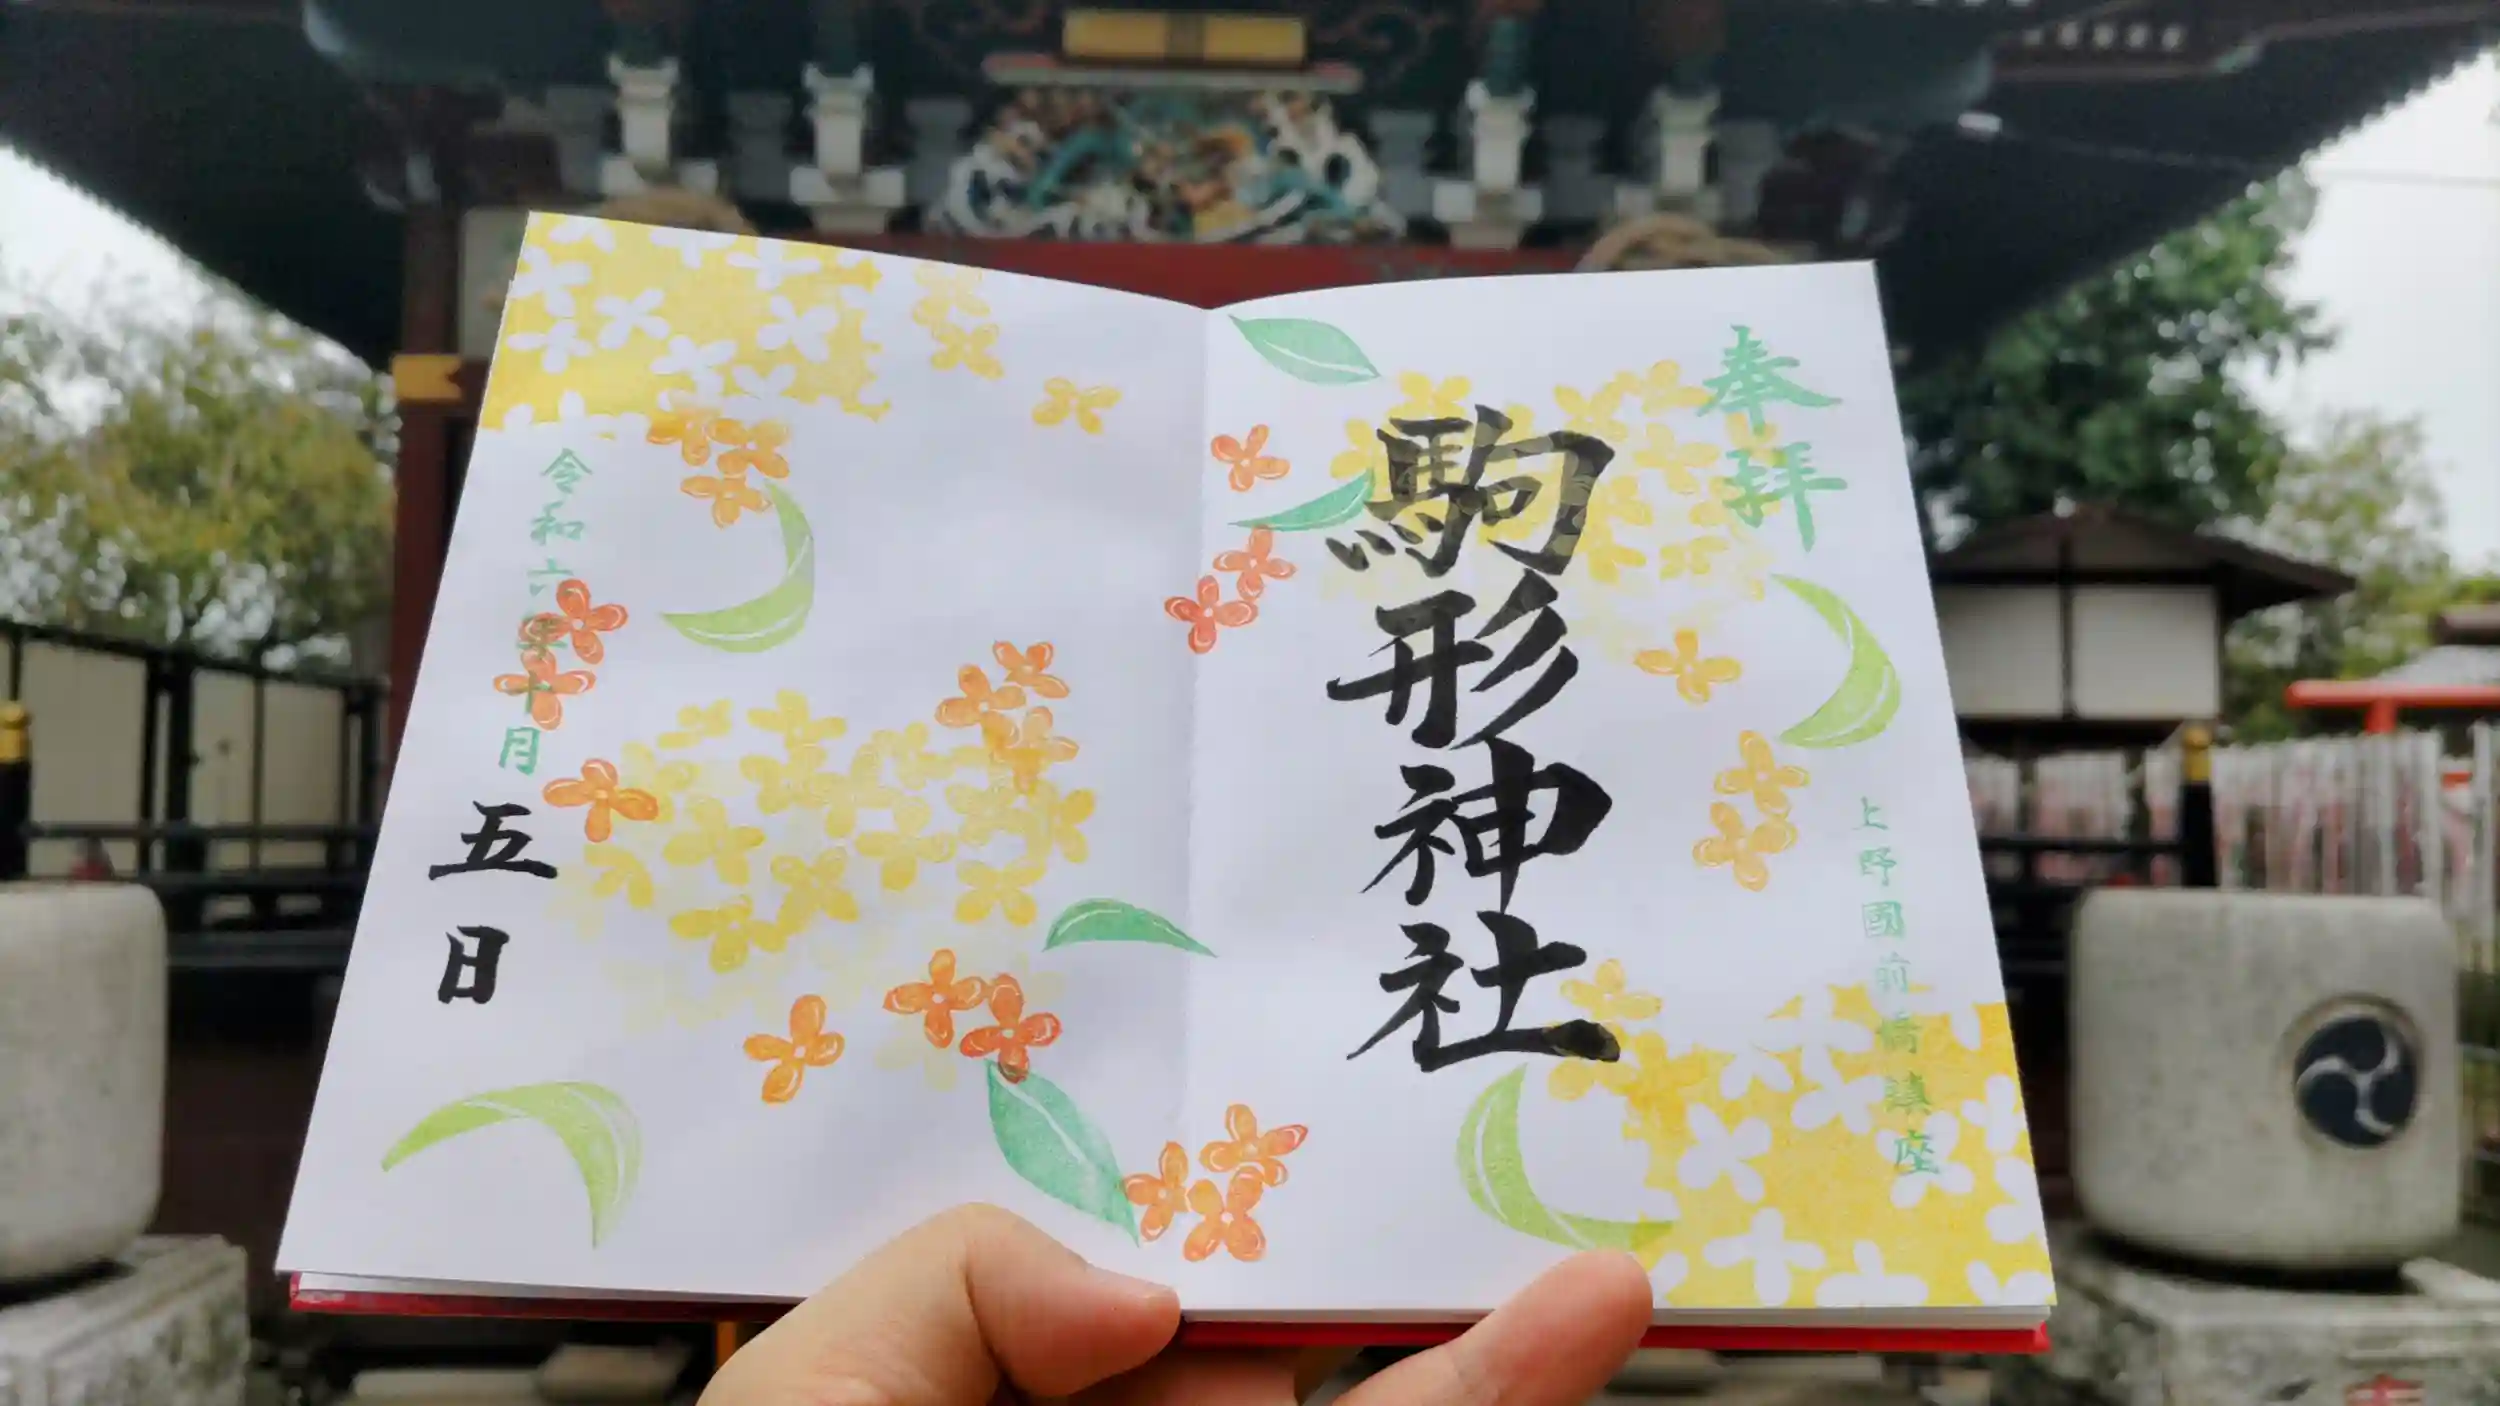 奉拝
上野國前橋鎮座
駒形神社
令和六年十月
五日